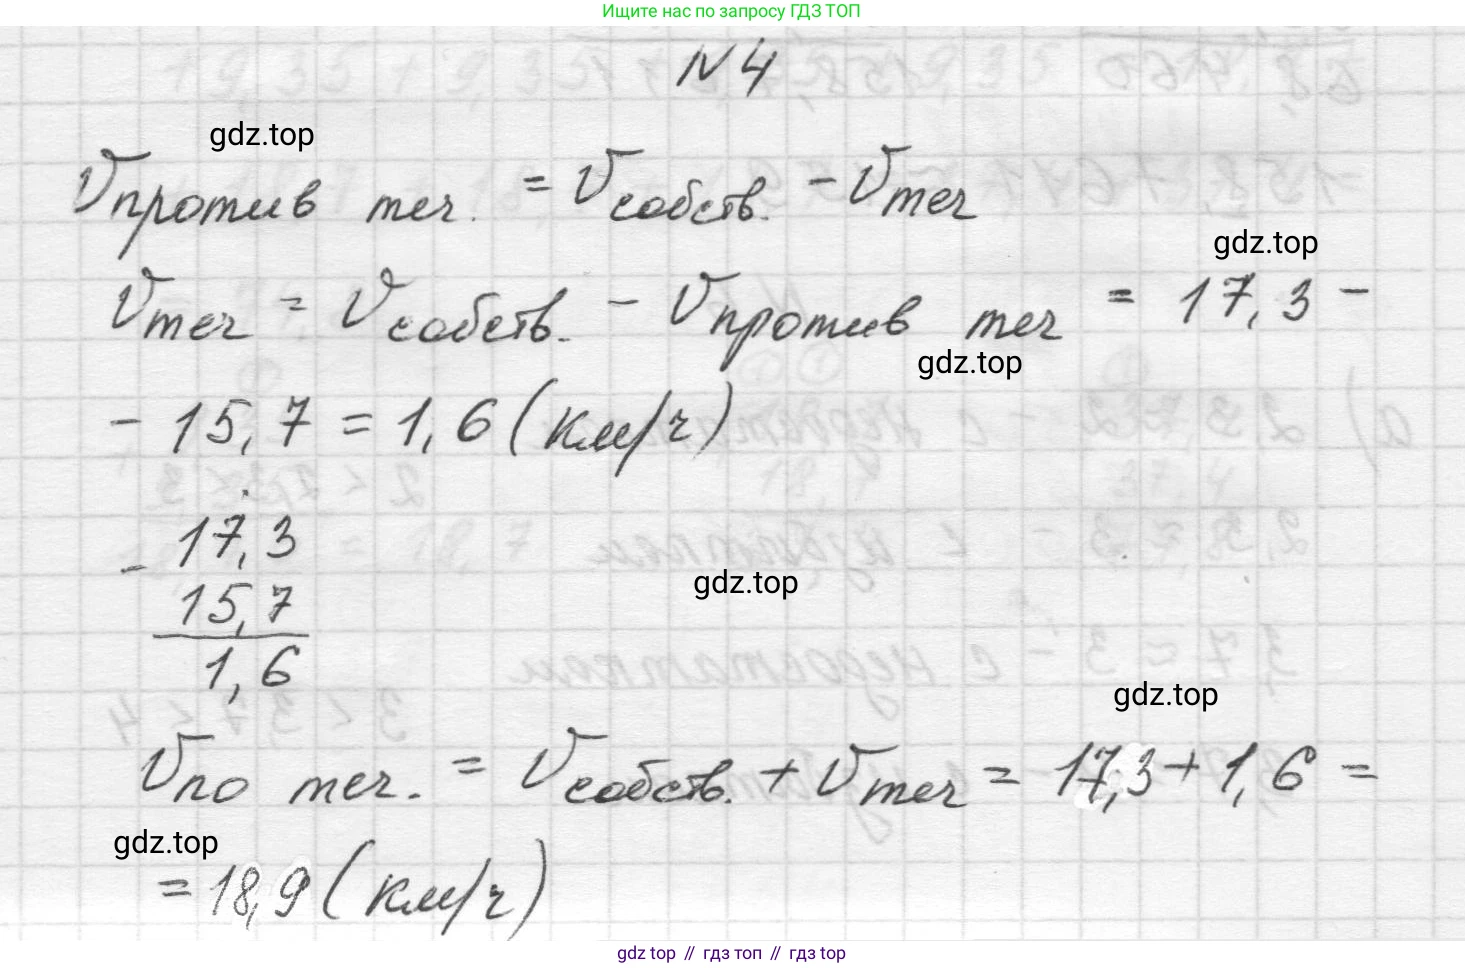 Ищите нас по запросу ГДЗ ТОП
N4
gdz.top
Vпротив теч. = Vсобств. - Vтеч
gdz.top
Vтеч = Vсобств. - Vпротив теч = 17,3 -
gdz.top
- 15,7 = 1,6 (км/ч)
17,3
-
gdz.top
15,7
1,6
gdz.top
Vпо теч. = Vсобств. + Vтеч = 17,3 + 1,6 =
gdz.top
= 18,9 (км/ч)
gdz top // гдз топ // гдз top